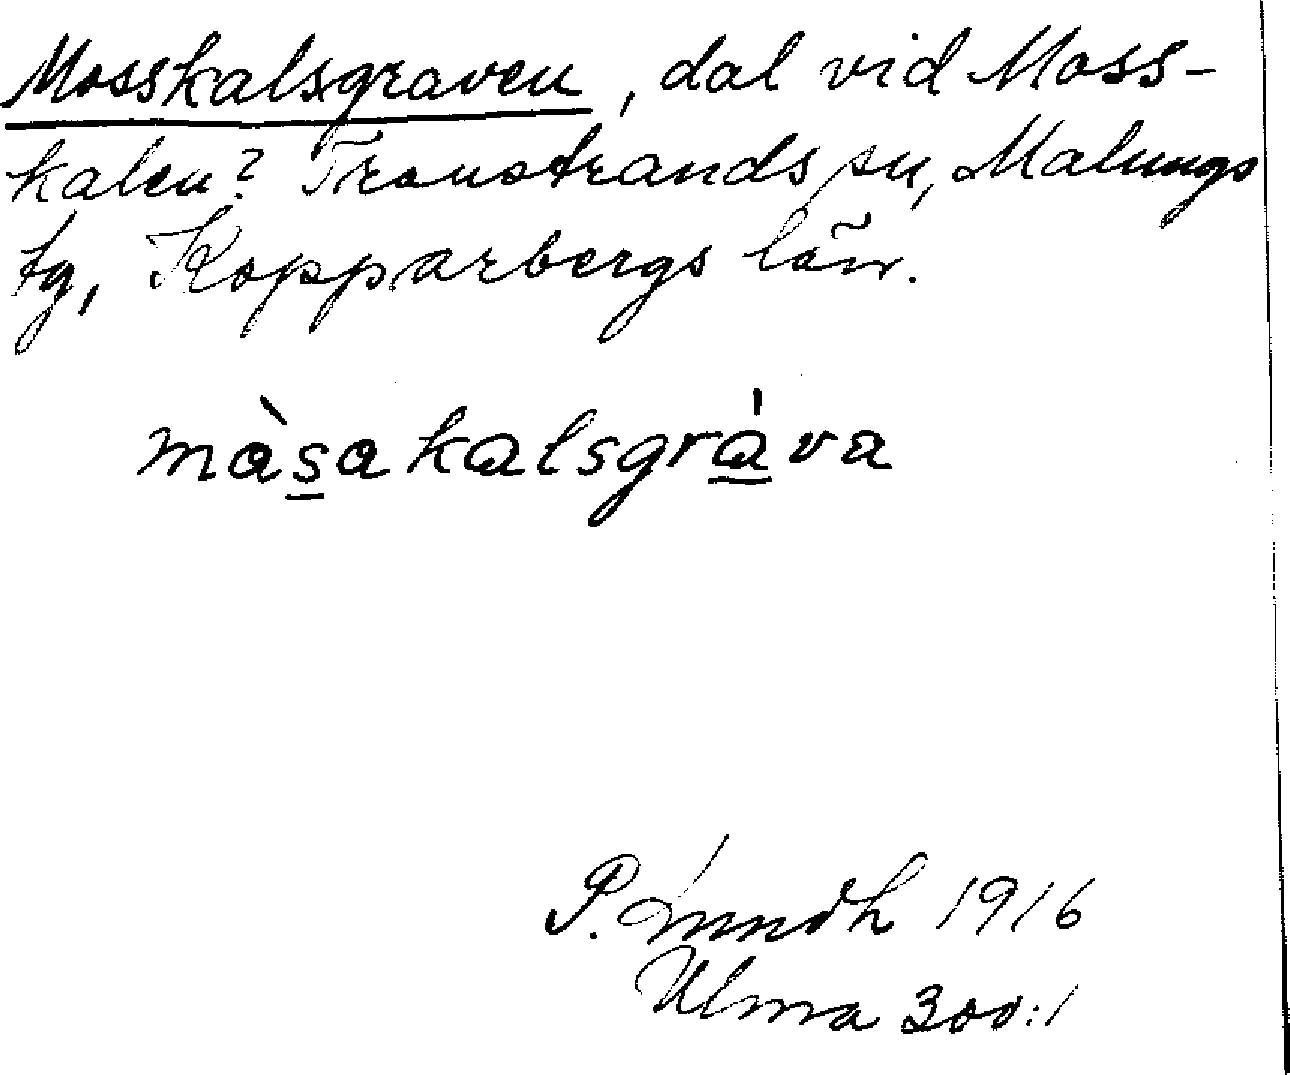 Mosskalsgraven, dal vid Moss-
kalen? Transtrands sn, Malungs
tg, Kopparbergs län.
màsakalsgráva
P. Lindh 1916
Ulma 300:1